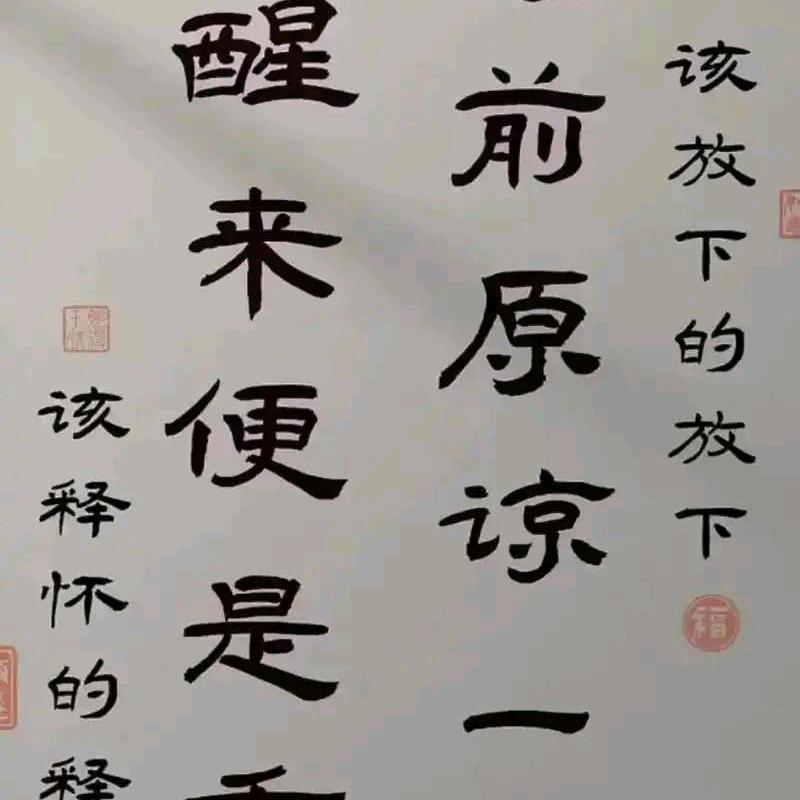 该放下的放下
福
前原谅一
醒来便是
该释怀的释